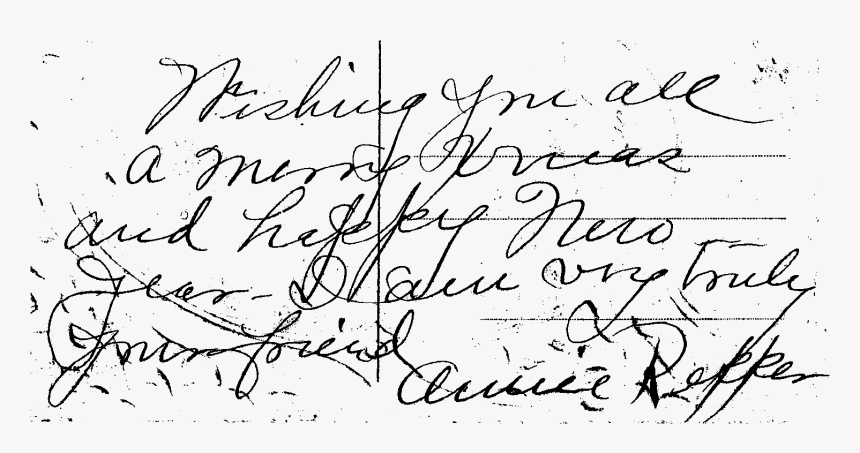 Wishing you all
a merry Xmas
and happy New
Year - I am very truly
your friend
Annie Pepper